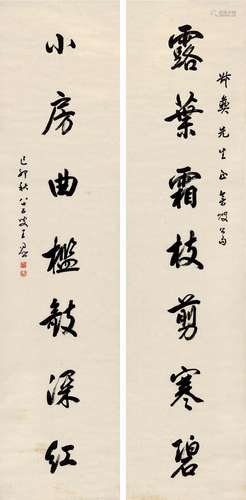 露葉霜枝剪寒碧
小房曲檻敧深紅
先生正
己卯秋